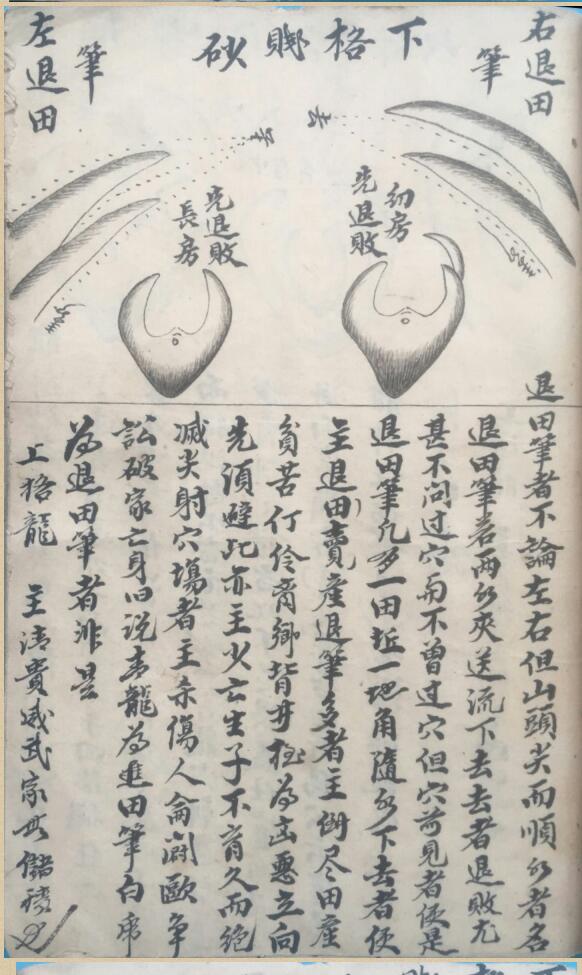 下格賤砂
右退田
筆
左退田
筆
幼房
先退敗
先退敗
長房
退田筆者不論左右但山頭尖而順水者名
退田筆若兩水夾送流下去去者退敗尤
甚不問过穴而不曾过穴但穴前見者便是
退田筆凡多一田坵一地角隨水下去者便
主退田賣產退筆多者主倒尽田産
貧苦伶仃离鄉背井極為凶惡立向
先須避此亦主少亡生子不育久而絕
滅尖射穴塲者主杀傷人命鬪歐争
訟破家亡身旧说青龍為進田筆白虎
為退田筆者非是
上格龍 主清貴威武家無儲積